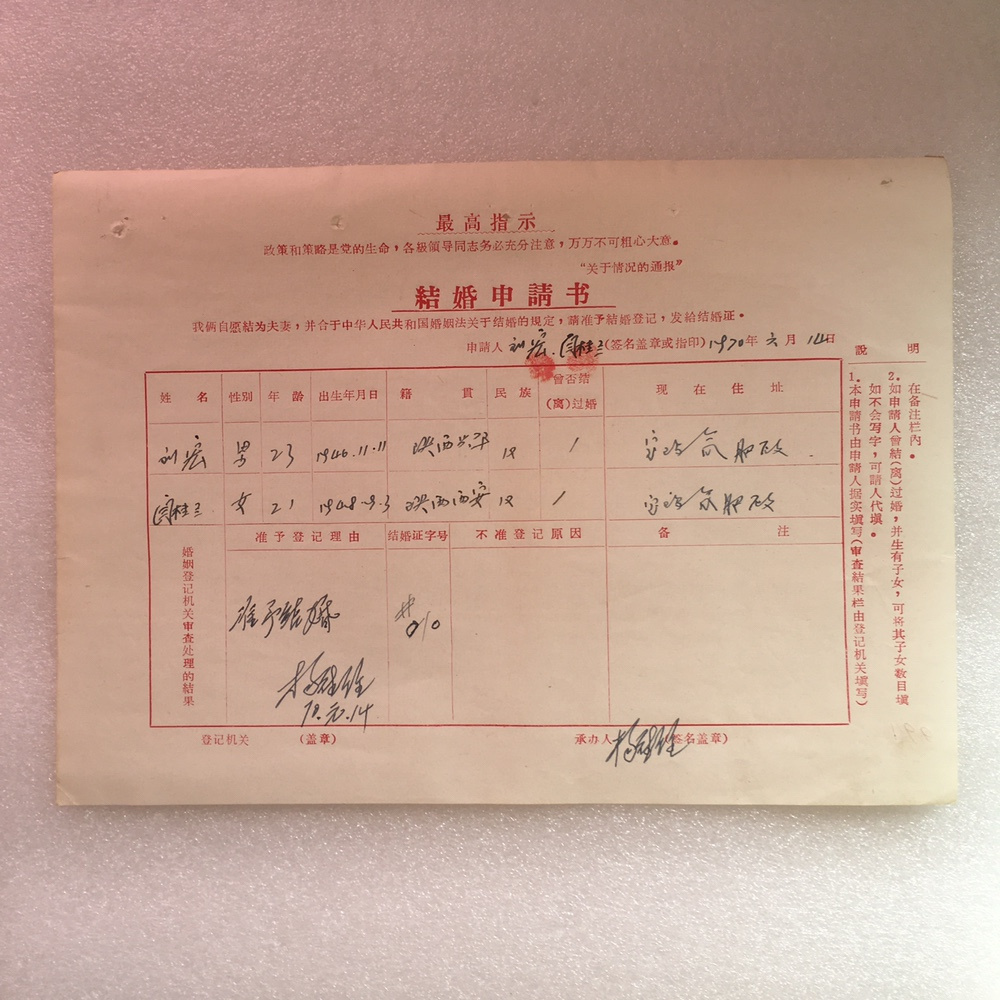 最高指示
政策和策略是党的生命，各級領导同志务必充分注意，万万不可粗心大意。
“关于情况的通报”
結婚申請书
我俩自愿結为夫妻，并合于中华人民共和国婚姻法关于结婚的規定，請准予結婚登记，发給结婚证。
申請人 刘宏、闫桂兰(签名盖章或指印)1970年六月14日
姓名 性别 年龄 出生年月日 籍貫 民族 曾否結(离)过婚 現在住址
刘宏 男 23 1946.11.11 陕西兴平 汉 /
闫桂兰 女 21 1948.9.3 陕西西安 汉 /
婚姻登记机关审查处理的結果
准予登记理由 结婚证字号 不准登记原因 备注
准予结婚 #010
70.元.14
登记机关 (盖章) 承办人 (签名盖章)
說明
1.本申請书由申請人据实填写(审查結果栏由登记机关填写)
如不会写字，可請人代填。
2.如申請人曾結(离)过婚，并生有子女，可将其子女数目填
在备注栏內。